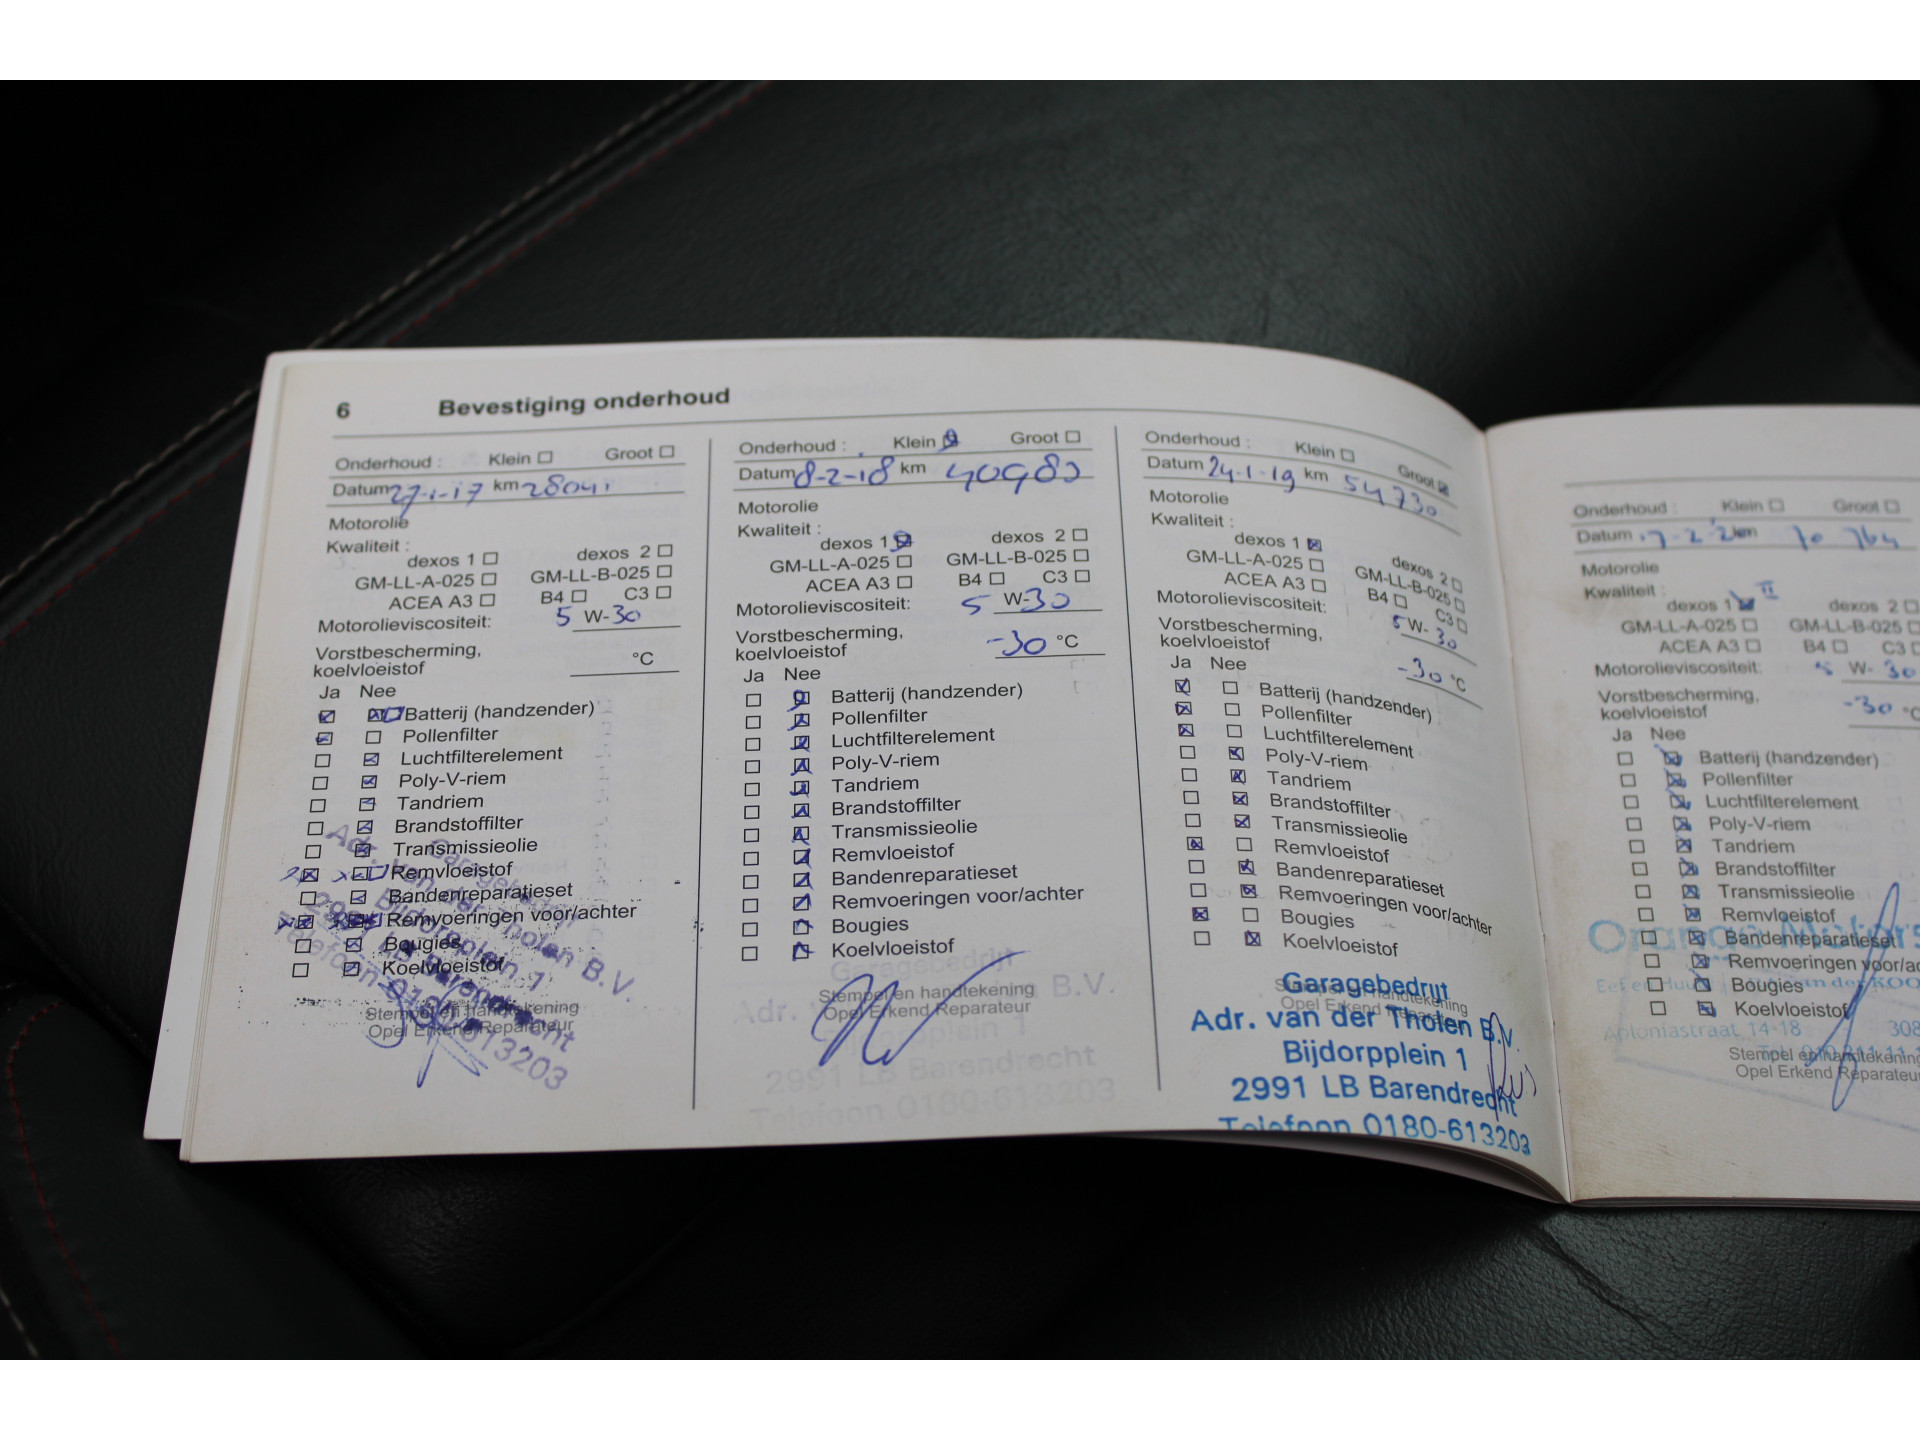 6 Bevestiging onderhoud
Onderhoud : Klein Groot
Datum 27-1-17 km 28041
Motorolie
Kwaliteit :
dexos 1 dexos 2
GM-LL-A-025 GM-LL-B-025
ACEA A3 B4 C3
Motorolieviscositeit: 5 W-30
Vorstbescherming,
koelvloeistof °C
Ja Nee
Batterij (handzender)
Pollenfilter
Luchtfilterelement
Poly-V-riem
Tandriem
Brandstoffilter
Transmissieolie
Remvloeistof
Bandenreparatieset
Remvoeringen voor/achter
Bougies
Koelvloeistof
Garagebedrijf
Adr. van der Tholen B.V.
Bijdorpplein 1
2991 LB Barendrecht
Telefoon 0180-613203
Stempel en handtekening
Opel Erkend Reparateur
Onderhoud : Klein Groot
Datum 8-2-18 km 40983
Motorolie
Kwaliteit :
dexos 1 dexos 2
GM-LL-A-025 GM-LL-B-025
ACEA A3 B4 C3
Motorolieviscositeit: 5 W-30
Vorstbescherming,
koelvloeistof -30 °C
Ja Nee
Batterij (handzender)
Pollenfilter
Luchtfilterelement
Poly-V-riem
Tandriem
Brandstoffilter
Transmissieolie
Remvloeistof
Bandenreparatieset
Remvoeringen voor/achter
Bougies
Koelvloeistof
Garagebedrijf
Stempel en handtekening
Opel Erkend Reparateur
Adr. v B.V.
Bijdorpplein 1
2991 LB Barendrecht
Telefoon 0180-613203
Onderhoud : Klein Groot
Datum 24-1-19 km 54730
Motorolie
Kwaliteit :
dexos 1 dexos 2
GM-LL-A-025 GM-LL-B-025
ACEA A3 B4 C3
Motorolieviscositeit: 5 W-30
Vorstbescherming,
koelvloeistof -30 °C
Ja Nee
Batterij (handzender)
Pollenfilter
Luchtfilterelement
Poly-V-riem
Tandriem
Brandstoffilter
Transmissieolie
Remvloeistof
Bandenreparatieset
Remvoeringen voor/achter
Bougies
Koelvloeistof
Garagebedrijf
Stempel en handtekening
Opel Erkend Reparateur
Adr. van der Tholen B.V.
Bijdorpplein 1
2991 LB Barendrecht
Telefoon 0180-613203
Onderhoud : Klein Groot
Datum km 70 764
Motorolie
Kwaliteit :
dexos 1 II dexos 2
GM-LL-A-025 GM-LL-B-025
ACEA A3 B4 C3
Motorolieviscositeit: 5 W-30
Vorstbescherming,
koelvloeistof -30 °C
Ja Nee
Batterij (handzender)
Pollenfilter
Luchtfilterelement
Poly-V-riem
Tandriem
Brandstoffilter
Transmissieolie
Remvloeistof
Orange Motors
Bandenreparatieset
Remvoeringen voor/ac
Bougies
Koelvloeistof
Aploniastraat 14-18 308
Stempel en handtekening
Opel Erkend Reparateur